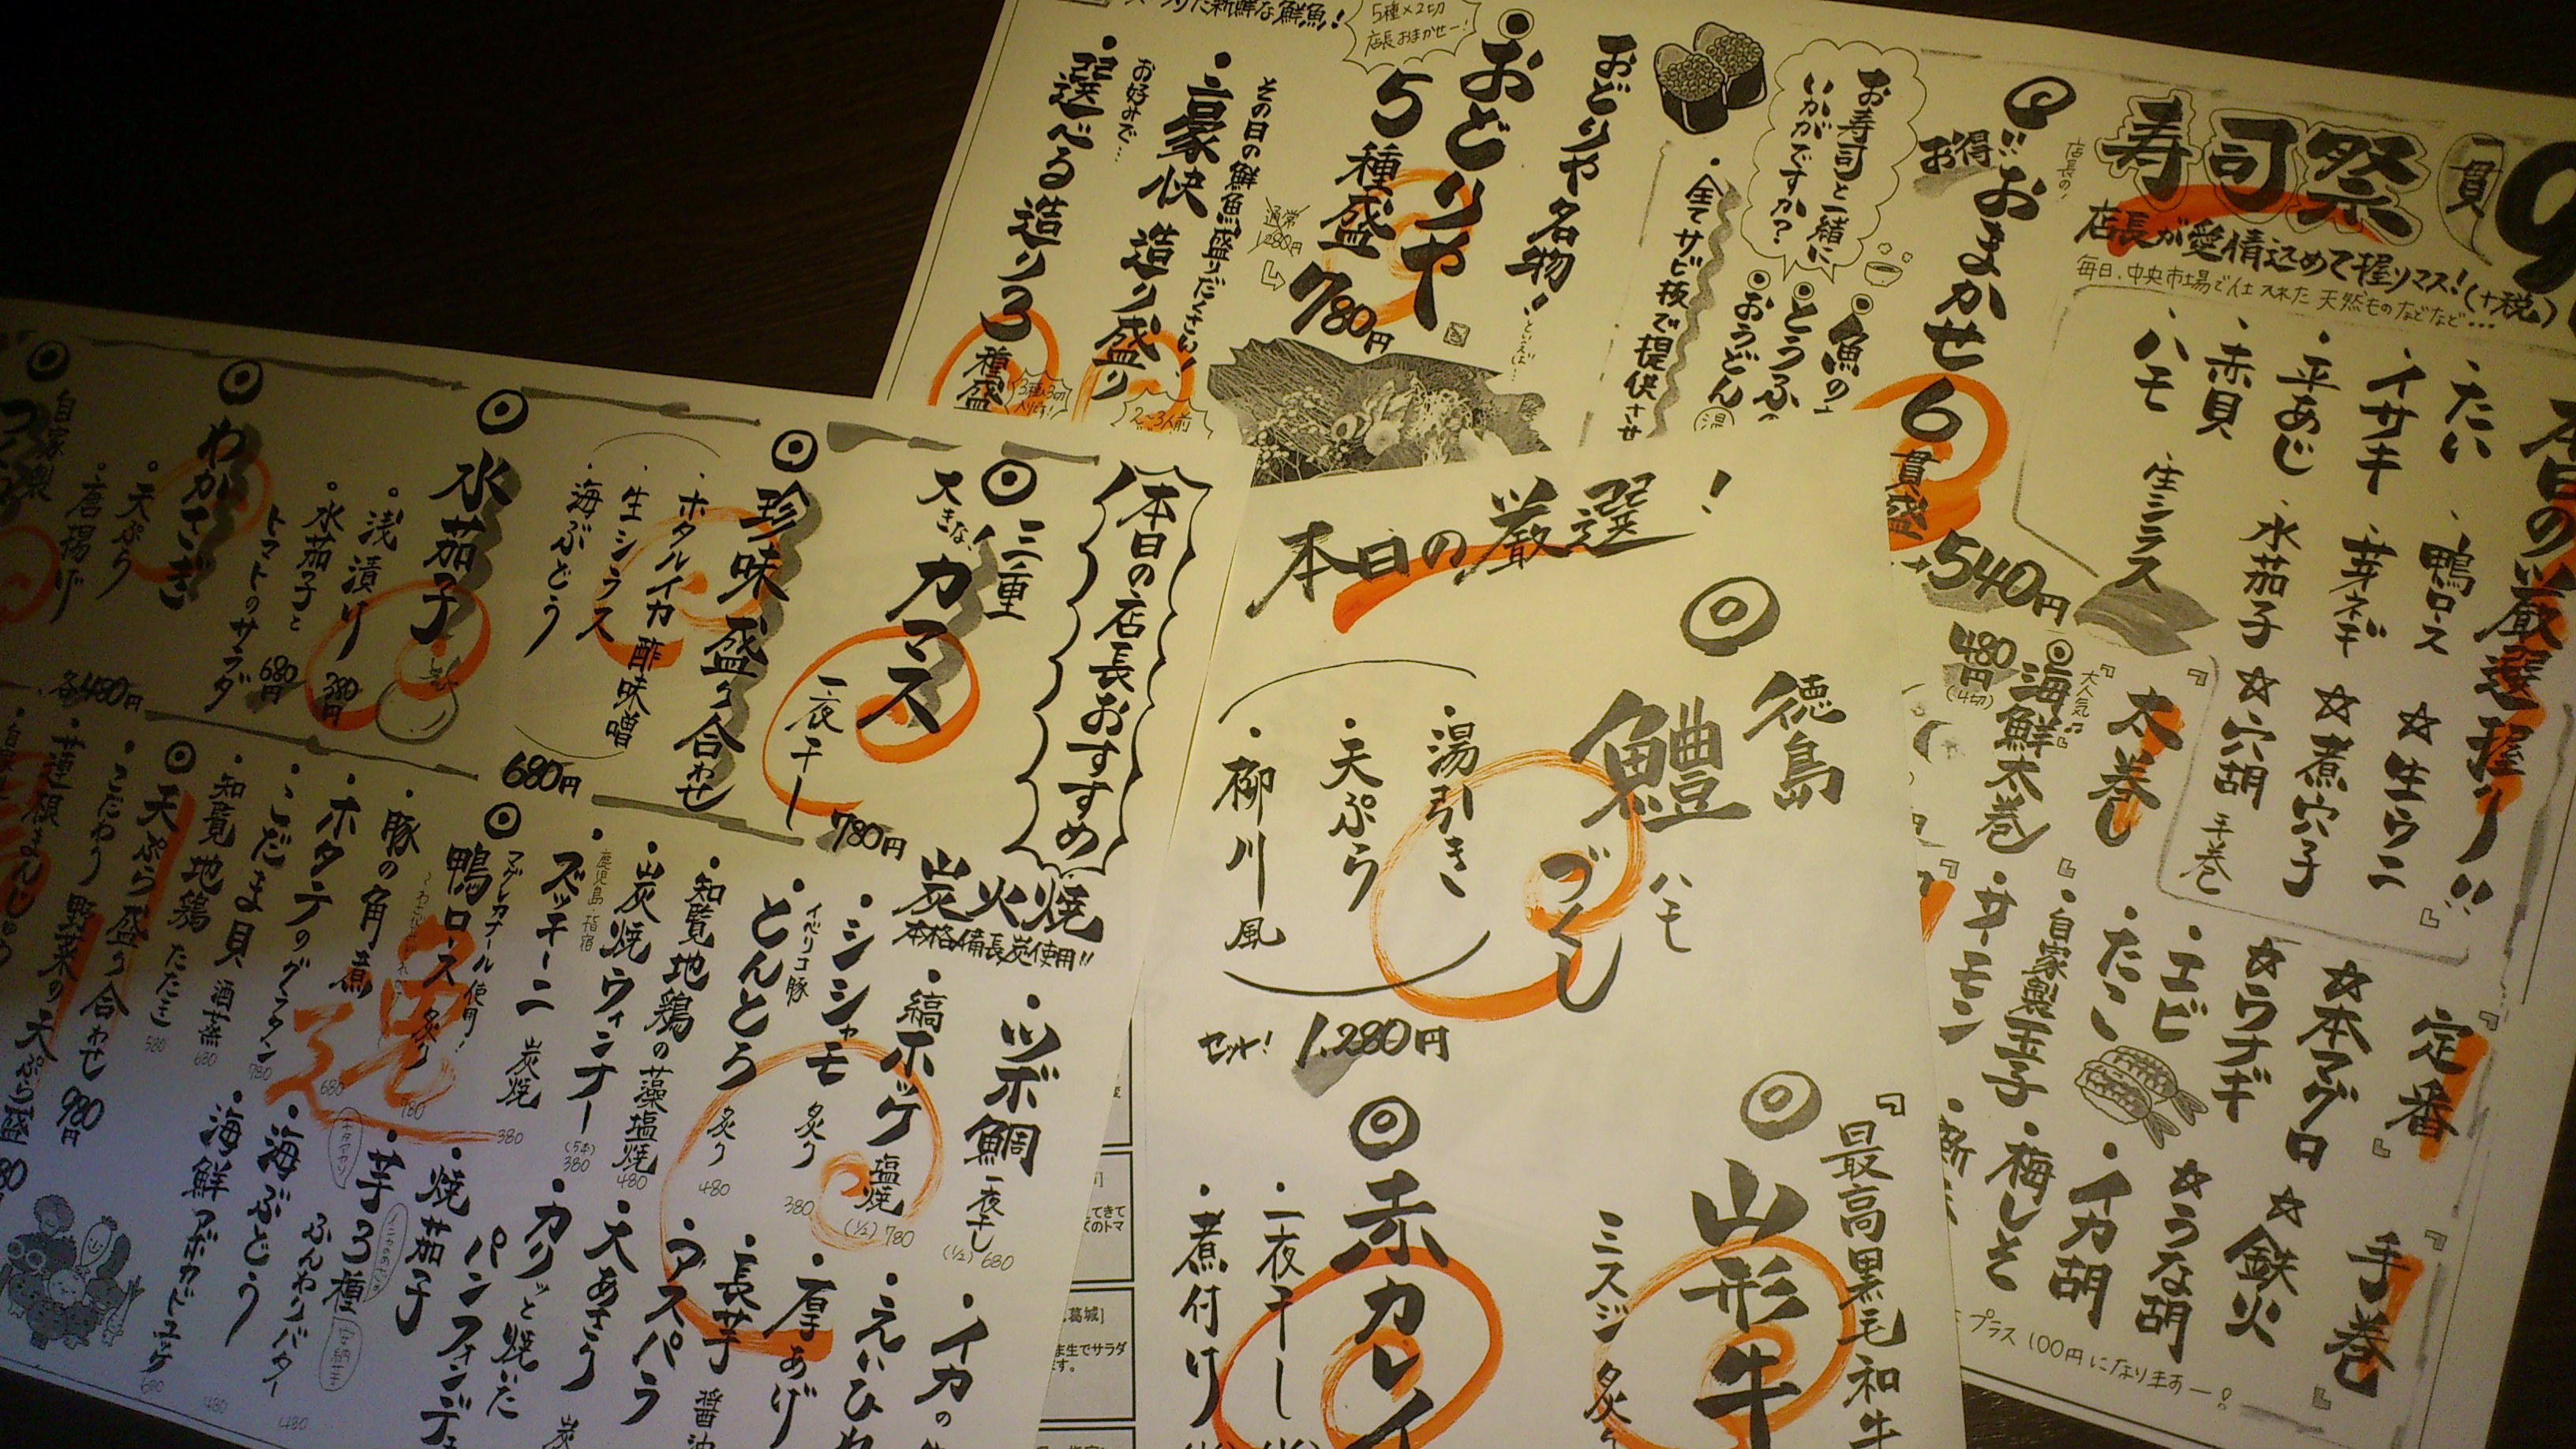 寿司祭
一貫
店長が愛情込めて握りマス！(+税)
毎日、中央市場で仕入れた天然ものなどなど…
本日の厳選握り!!
・たい
・鴨ロース
☆生ウニ
・イサキ
・芽ネギ
☆煮穴子
・平あじ
・水茄子
☆穴胡
手巻
・赤貝
・ハモ
生シラス
『定番』
☆本マグロ
☆鉄火
☆ウナギ
☆うな胡
・エビ
・イカ胡
・たこ
・梅しそ
・自家製玉子
・サーモン
『手巻』
プラス100円になりますー！
『太巻』
大人気
◎海鮮太巻
480円
(4切)
◎お得!!おまかせ
6貫盛
540円
お寿司と一緒に
いかがですか？
◎魚の
◎とうふ
◎おうどん
・全てサビ抜で提供させ
おどりや名物！
といえば…
◎おどりや
5種盛
780円
5種×2切
店長おまかせー！
その日の鮮魚盛りだくさん！
・豪快造り盛り
2〜3人前
お好みで…
・選べる造り3種盛
3種×3切
本日の厳選！
◎徳島
鱧づくし
ハモ
・湯引き
・天ぷら
・柳川風
セット！1,280円
◎『最高黒毛和牛
山形牛
ミスジ炙り
◎赤カレイ
・一夜干し
・煮付け
本日の店長おすすめ
◎三重
大きなカマス
一夜干し
780円
◎珍味盛り合わせ
・ホタルイカ酢味噌
・生シラス
・海ぶどう
680円
◎水茄子
・浅漬け
380円
・水茄子と
トマトのサラダ
680円
◎わかさぎ
・天ぷら
・唐揚げ
各480円
◎自家製
炭火焼
本格備長炭使用!!
・ツボ鯛一夜干し
(1/2)680
・縞ホッケ塩焼
(1/2)780
・シシャモ炙り
380
イベリコ豚
・とんとろ炙り
480
・知覧地鶏の藻塩焼
480
・炭焼ウィンナー
(5本)380
鹿児島 指宿
ズッキーニ炭焼
380
・イカの
・えいひれ
・厚あげ
・長芋
醤油
・アスパラ
・大あさり
・カリッと焼いた
パンフォンデュ
・焼茄子
・芋3種
ふんわりバター
480
・海ぶどう
480
・海鮮アボカドユッケ
680
◎マグレカナール使用！
鴨ロース炙り
780
・豚の角煮
680
・ホタテのグラタン
780
・こだま貝酒蒸
680
・知覧地鶏たたき
580
◎天ぷら盛り合わせ
980円
・こだわり野菜の天ぷら盛
・蓮根まんじゅう